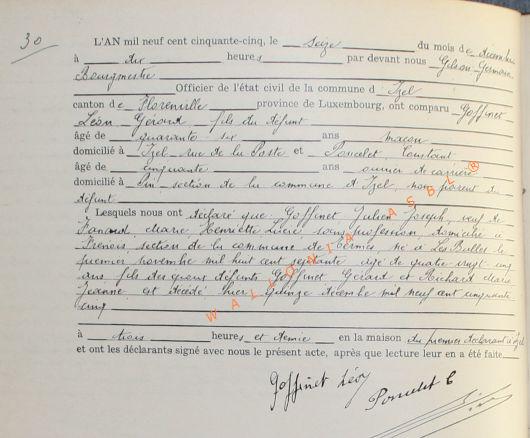 30
L'AN mil neuf cent cinquante-cinq, le seize du mois de décembre
à dix heures par devant nous Gilson Germain
Bourgmestre
Officier de l'état civil de la commune d'Izel
canton de Florenville province de Luxembourg, ont comparu Goffinet
Léon Gérard fils du défunt
âgé de quarante six ans maçon
domicilié à Izel rue de la Poste et Poncelet, Constant
âgé de cinquante ans ouvrier de carrière
domicilié à Pin section de la commune d'Izel, non parent du
défunt
Lesquels nous ont déclaré que Goffinet Julien Joseph, veuf de
Marie Henriette Lucie sans profession domicilié à
Frenois section de la commune de Termes né à Les Bulles le
premier novembre mil huit cent septante âgé de quatre vingt cinq
ans fils des époux défunts Goffinet Gérard et Richard Marie
Jeanne est décédé hier quinze décembre mil neuf cent cinquante
cinq
à trois heures et demie en la maison du premier déclarant à Izel
et ont les déclarants signé avec nous le présent acte, après que lecture leur en a été faite
Goffinet Léon
Poncelet C
WALLONIA ASBL ®